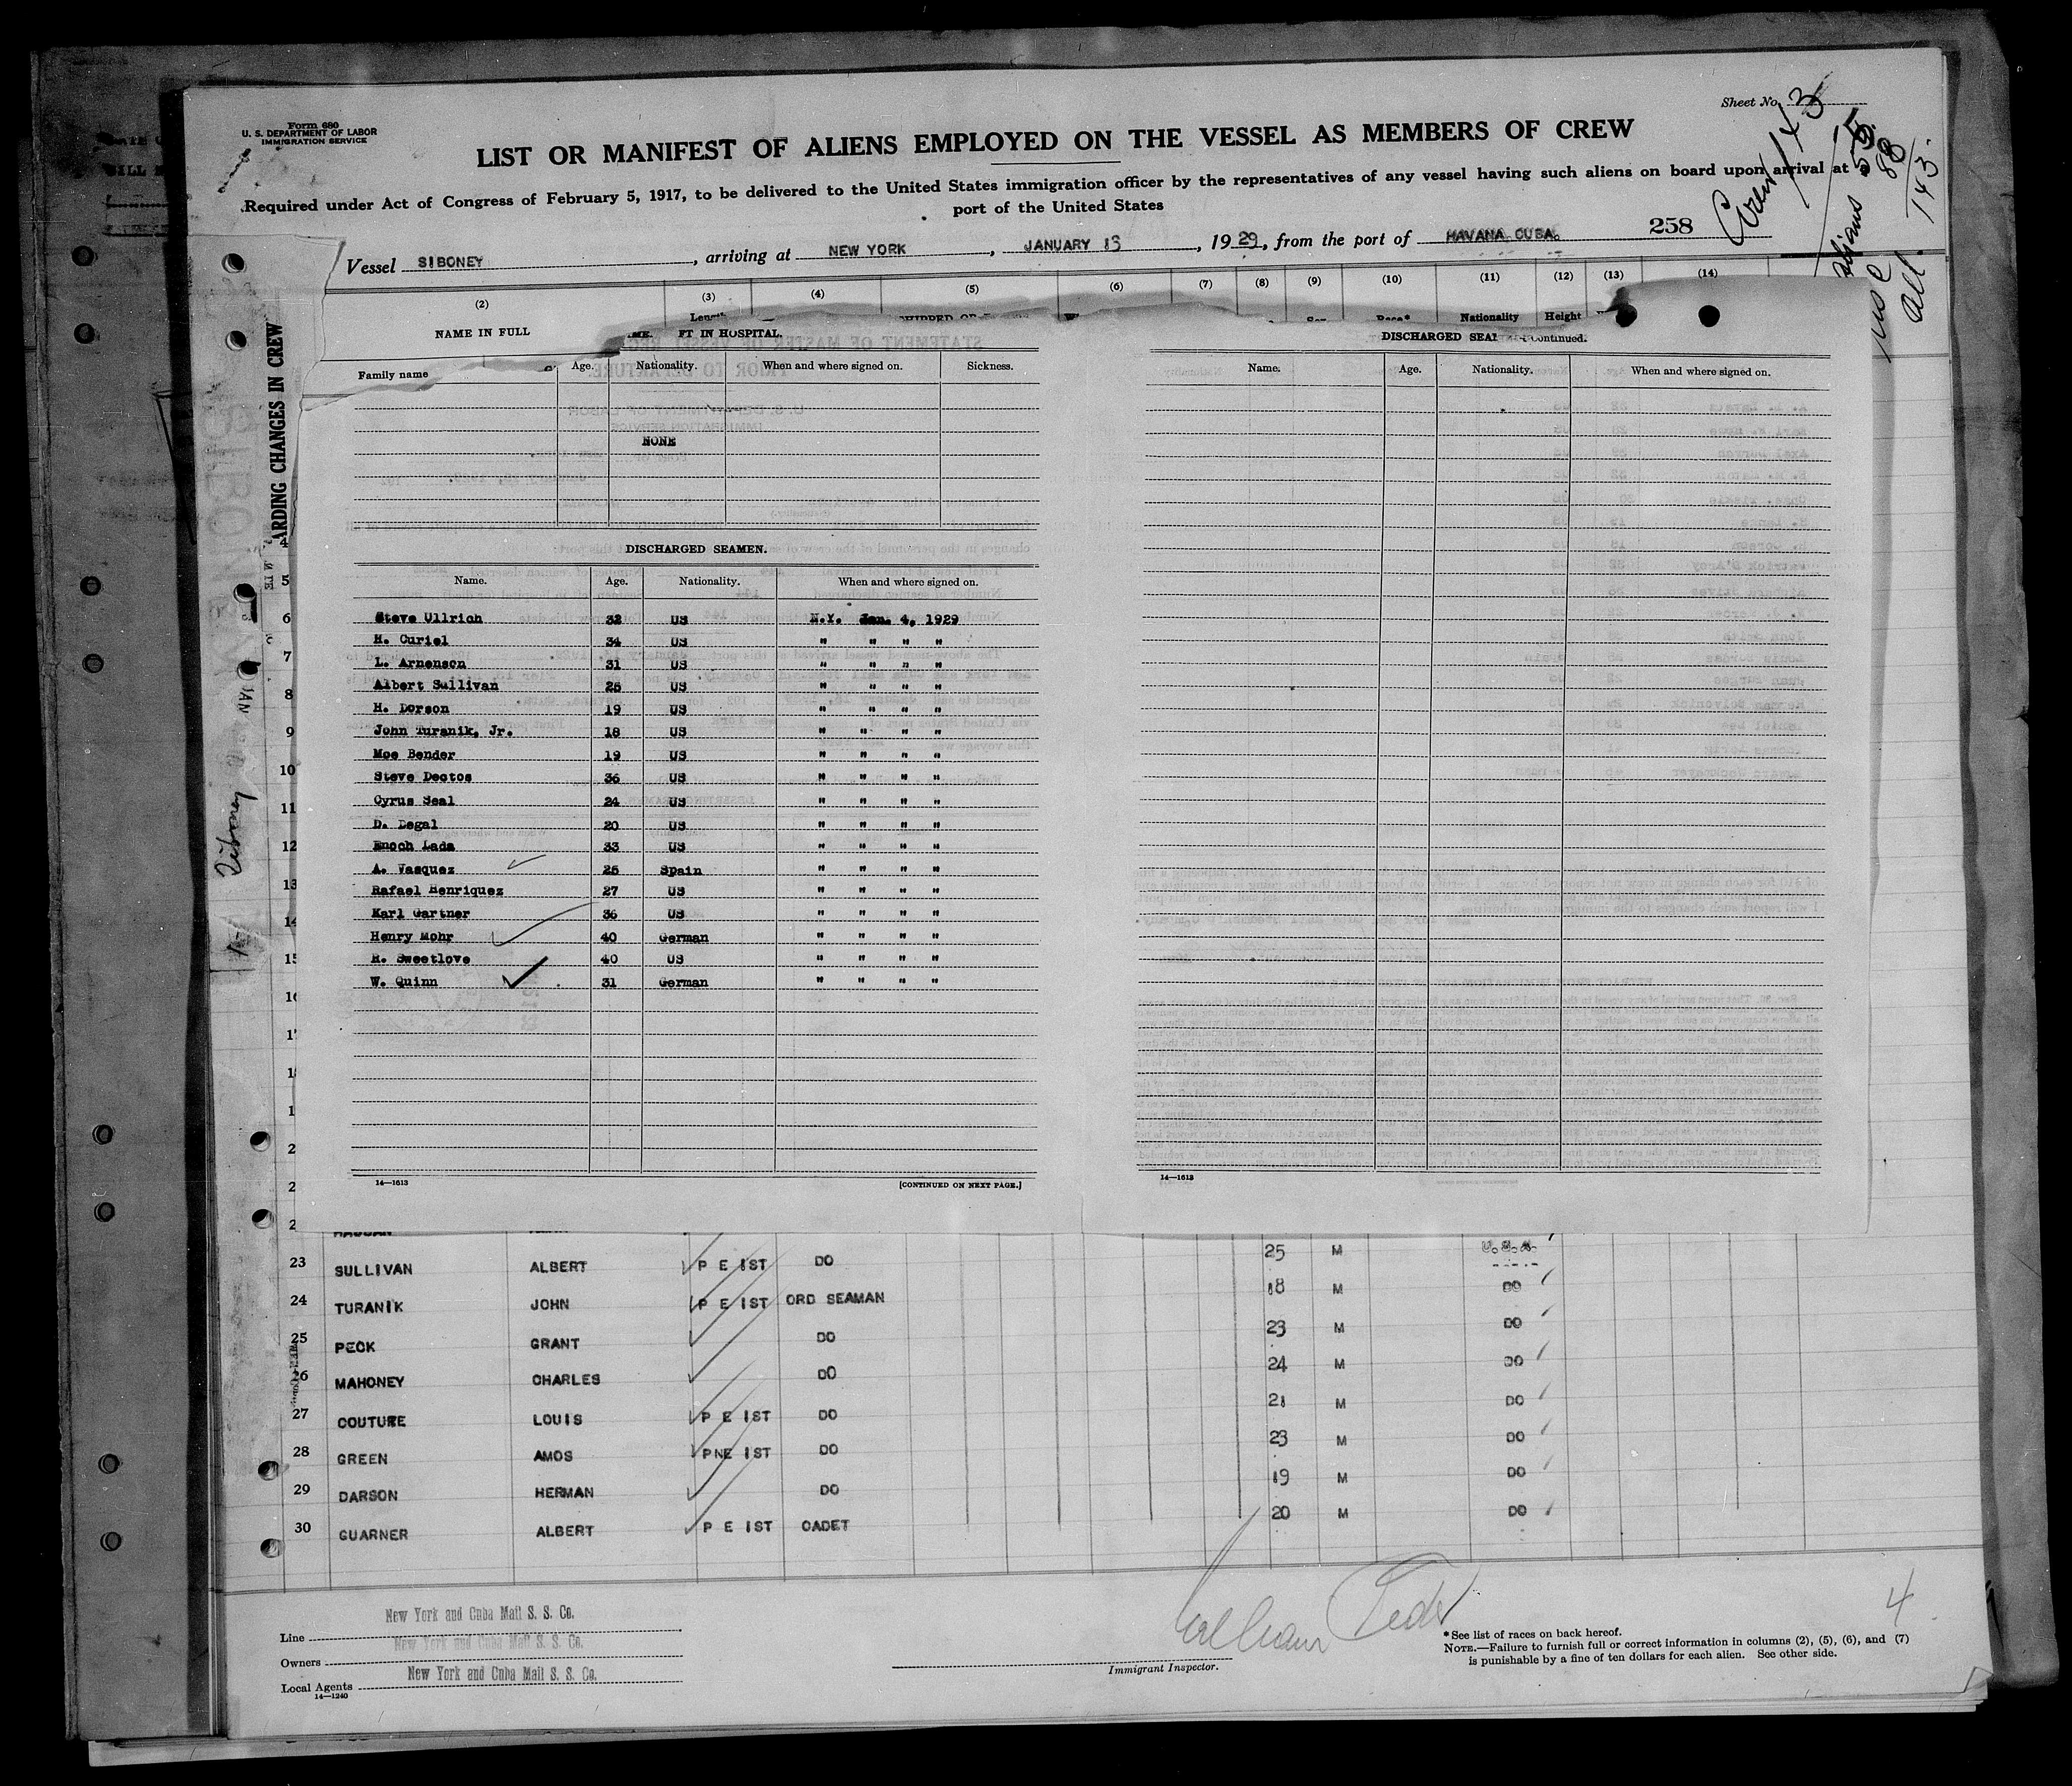 Form 680
U. S. DEPARTMENT OF LABOR
IMMIGRATION SERVICE
Sheet No.
LIST OR MANIFEST OF ALIENS EMPLOYED ON THE VESSEL AS MEMBERS OF CREW
Required under Act of Congress of February 5, 1917, to be delivered to the United States immigration officer by the representatives of any vessel having such aliens on board upon arrival at a
port of the United States
Crew 143
Aliens 55
USC 88
All 143
258
Vessel SIBONEY, arriving at NEW YORK, JANUARY 13, 1929, from the port of HAVANA, CUBA.
(2) (3) (4) (5) (6) (7) (8) (9) (10) (11) (12) (13) (14)
NAME IN FULL Length Sex Race* Nationality Height
Family name
ARDING CHANGES IN CREW
Siboney
FT IN HOSPITAL.
Age. Nationality. When and where signed on. Sickness.
NONE
DISCHARGED SEAMEN.
Name. Age. Nationality. When and where signed on.
Steve Ullrich 32 US N.Y. Jan. 4, 1929
H. Curiel 34 US " " " "
L. Arnenson 31 US " " " "
Albert Sullivan 25 US " " " "
H. Dorson 19 US " " " "
John Turanik, Jr. 18 US " " " "
Moe Bender 19 US " " " "
Steve Dectos 36 US " " " "
Cyrus Seal 24 US " " " "
D. Degal 20 US " " " "
Enoch Lada 33 US " " " "
A. Vasquez 25 Spain " " " "
Rafael Henriquez 27 US " " " "
Karl Gartner 36 US " " " "
Henry Mohr 40 German " " " "
H. Sweetlove 40 US " " " "
W. Quinn 31 German " " " "
14—1613 [CONTINUED ON NEXT PAGE.]
DISCHARGED SEA Continued.
Name. Age. Nationality. When and where signed on.
14—1613
4
5
6
7
8
9
10
11
12
13
14
23 SULLIVAN ALBERT P E IST DO 25 M U.S.A.
24 TURANIK JOHN P E IST ORD SEAMAN 18 M DO
25 PECK GRANT DO 23 M DO
26 MAHONEY CHARLES DO 24 M DO
27 COUTURE LOUIS P E IST DO 21 M DO
28 GREEN AMOS PNE IST DO 23 M DO
29 DARSON HERMAN DO 19 M DO
30 GUARNER ALBERT P E IST CADET 20 M DO
Line New York and Cuba Mail S. S. Co.
Owners New York and Cuba Mail S. S. Co.
Local Agents New York and Cuba Mail S. S. Co.
14—1240
William
Immigrant Inspector.
4
*See list of races on back hereof.
NOTE.—Failure to furnish full or correct information in columns (2), (5), (6), and (7)
is punishable by a fine of ten dollars for each alien. See other side.